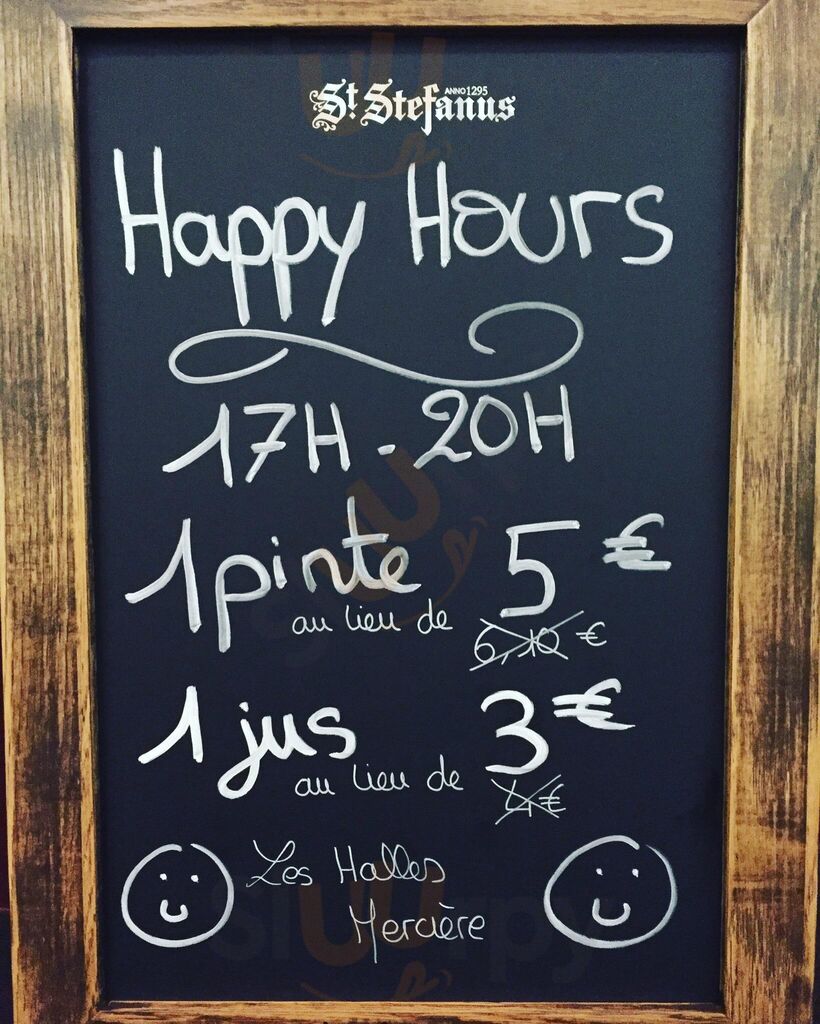 St Stefanus ANNO 1295
Happy Hours
17H - 20H
1 pinte 5 €
au lieu de 6,10 €
1 jus 3 €
au lieu de 4 €
Les Halles
Mercière
Sluurpy